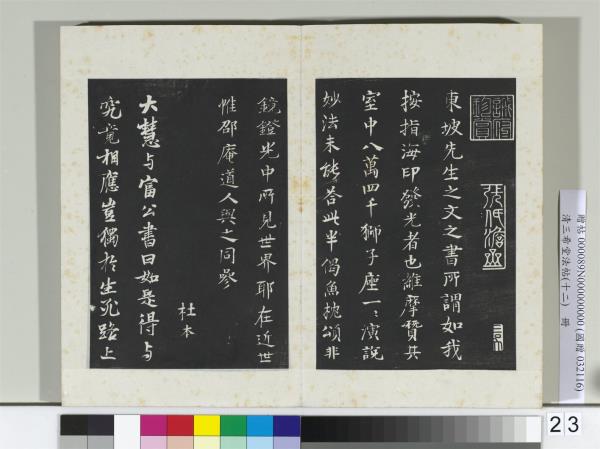 東坡先生之文之書所謂如我
按指海印發光者也維摩贊其
室中八萬四千獅子座一一演說
妙法未能答此半偈魚枕頌非
鏡鐙光中所見世界耶在近世
惟邵庵道人與之同參
杜本
大慧与富公書曰如是得与
究竟相應豈獨於生死路上
贈帖 000089N000000000 (國贈 032116)
清三希堂法帖(十二) 冊
23